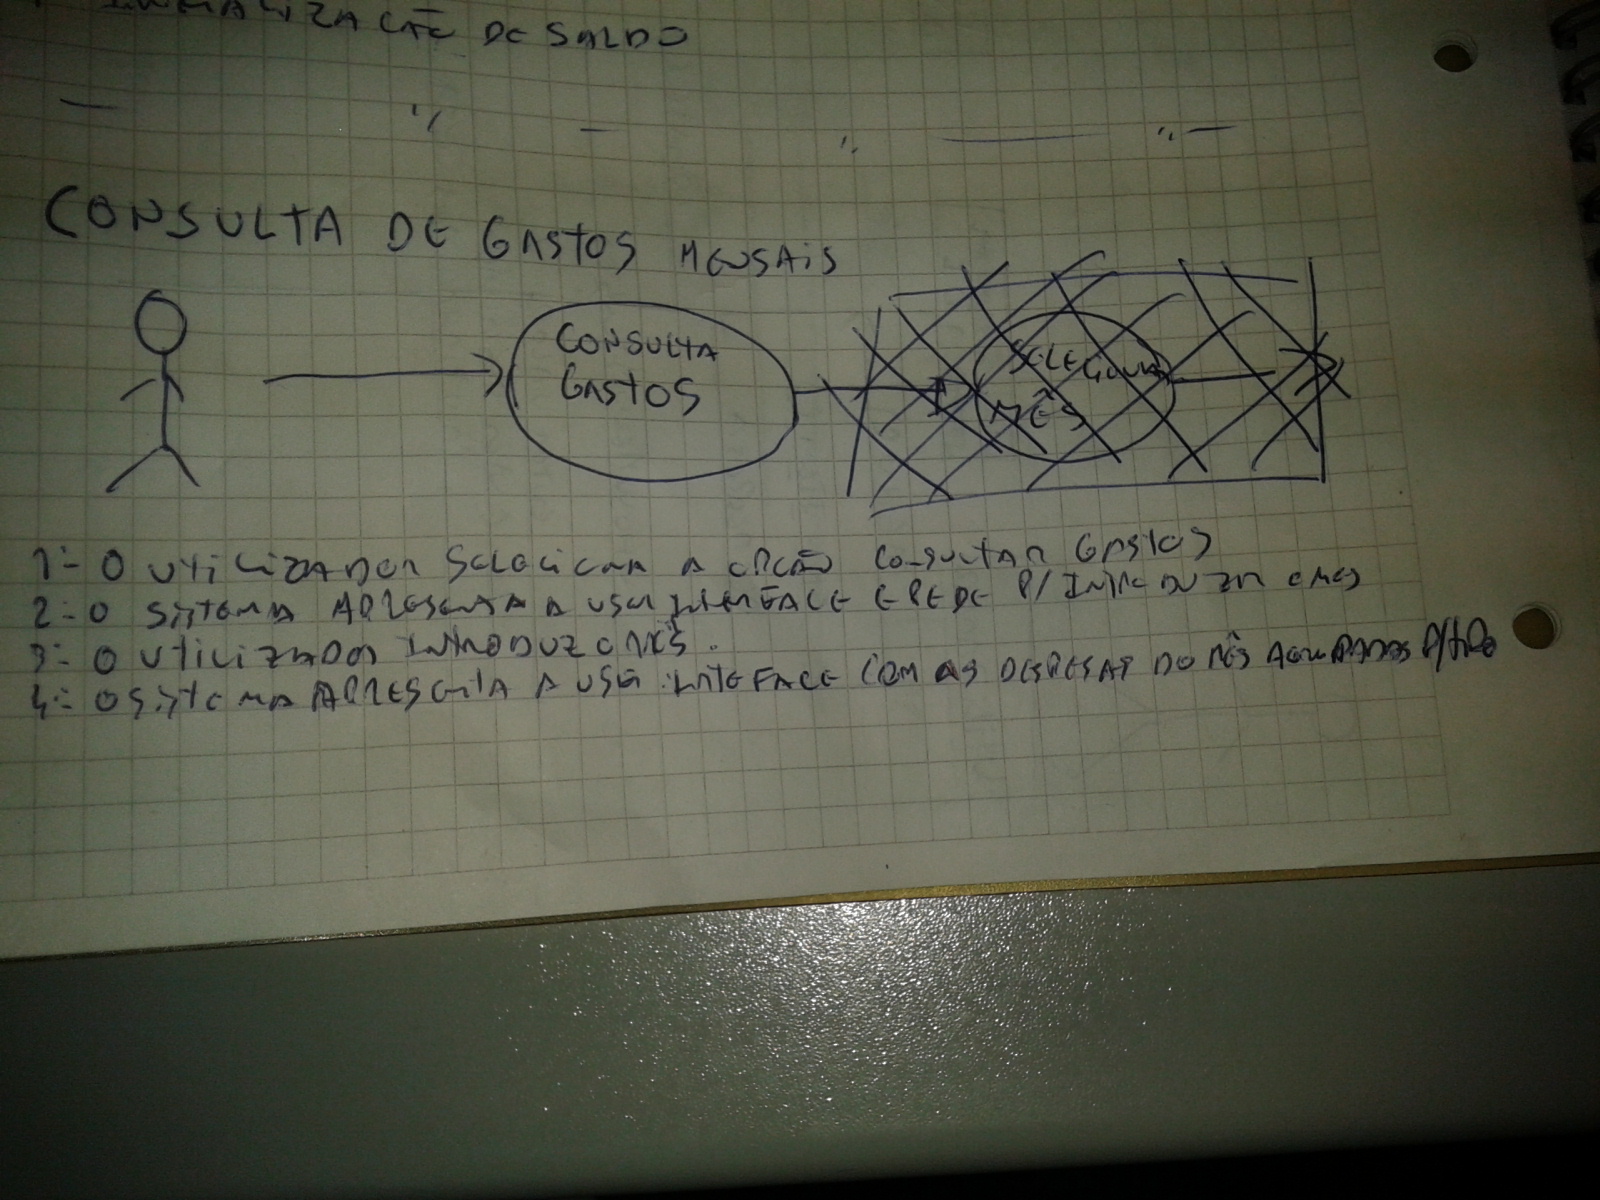 INICIALIZAÇÃO DE SALDO
CONSULTA DE GASTOS MENSAIS
CONSULTA
GASTOS
SELECIONA
MÊS
1:- O UTILIZADOR SELECIONA A OPÇÃO CONSULTAR GASTOS
2:- O SISTEMA APRESENTA A USER INTERFACE E PEDE P/ INTRODUZIR O MES
3:- O UTILIZADOR INTRODUZ O MÊS.
4:- O SISTEMA APRESENTA A USER INTEFACE COM AS DESPESAS DO MÊS AGRUPADAS P/TIPO